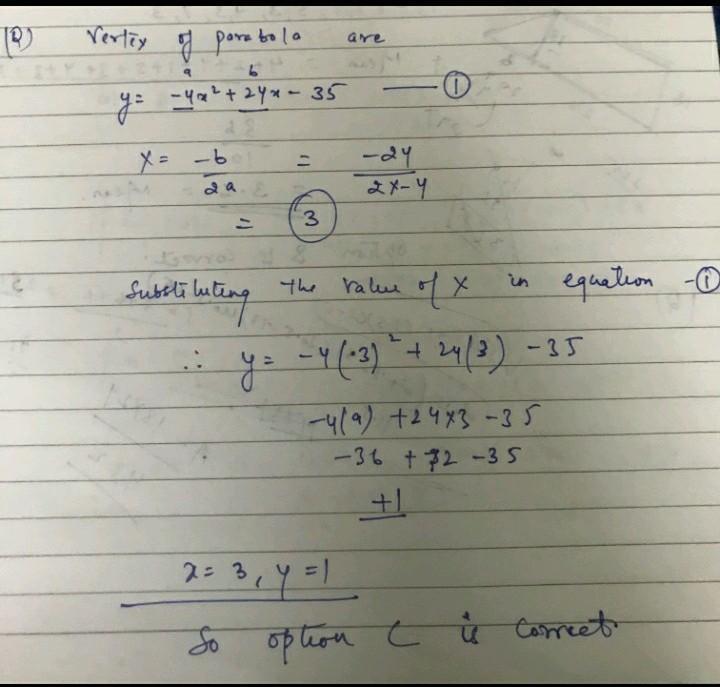 (Q) Vertex of parabola are
a b
y = -4x² + 24x - 35 —— ①
x = -b/2a = -24/2×-4
= ③
Substituting the value of x in equation -①
∴ y = -4(3)² + 24(3) - 35
-4(9) + 24×3 - 35
-36 + 72 - 35
+1
x = 3, y = 1
So option C is correct